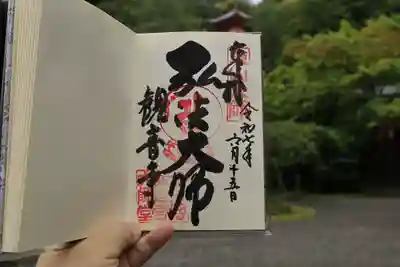 奉拝
令和七年
六月十五日
弘法大師
観音寺